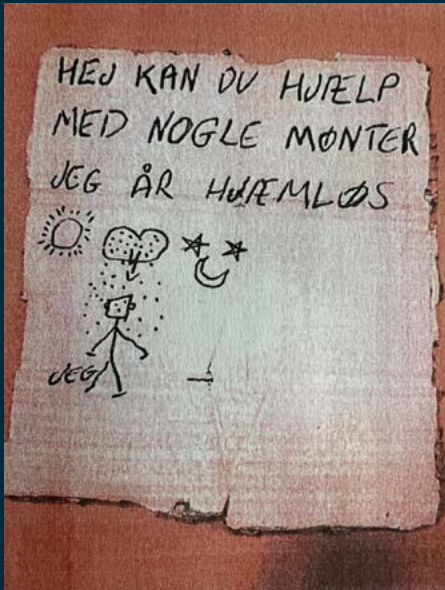 HEJ KAN DU HJÆLP
MED NOGLE MØNTER
JEG ÅR HJÆMLØS
JEG